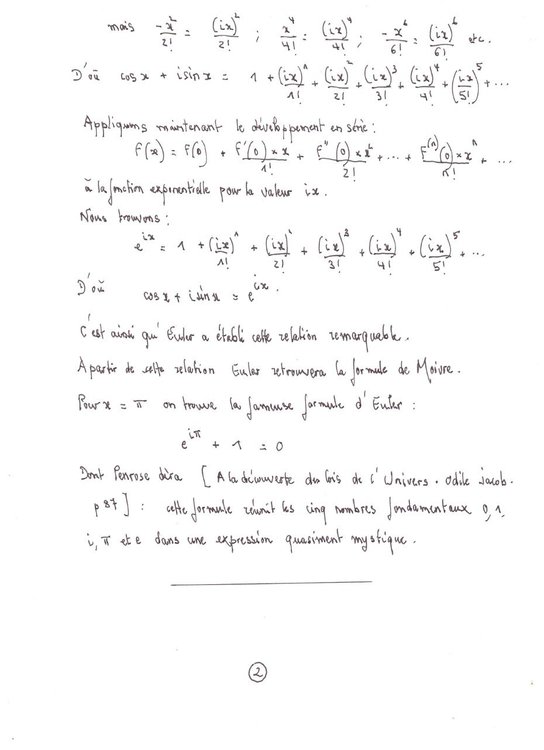 mais -x²/2! = (ix)²/2! ; x⁴/4! = (ix)⁴/4! ; -x⁶/6! = (ix)⁶/6! etc.
D'où cos x + i sin x = 1 + (ix)¹/1! + (ix)²/2! + (ix)³/3! + (ix)⁴/4! + (ix)⁵/5! + ...
Appliquons maintenant le développement en série :
F(x) = F(0) + F'(0) × x/1! + F''(0) × x²/2! + ... + F⁽ⁿ⁾(0) × xⁿ/n! + ...
à la fonction exponentielle pour la valeur ix.
Nous trouvons :
e^{ix} = 1 + (ix)¹/1! + (ix)²/2! + (ix)³/3! + (ix)⁴/4! + (ix)⁵/5! + ...
D'où cos x + i sin x = e^{ix}.
C'est ainsi qu'Euler a établi cette relation remarquable.
A partir de cette relation Euler retrouvera la formule de Moivre.
Pour x = π on trouve la fameuse formule d'Euler :
e^{iπ} + 1 = 0
Dont Penrose dira [A la découverte des lois de l'Univers. Odile Jacob.
p 87] : cette formule réunit les cinq nombres fondamentaux 0, 1,
i, π et e dans une expression quasiment mystique.
2